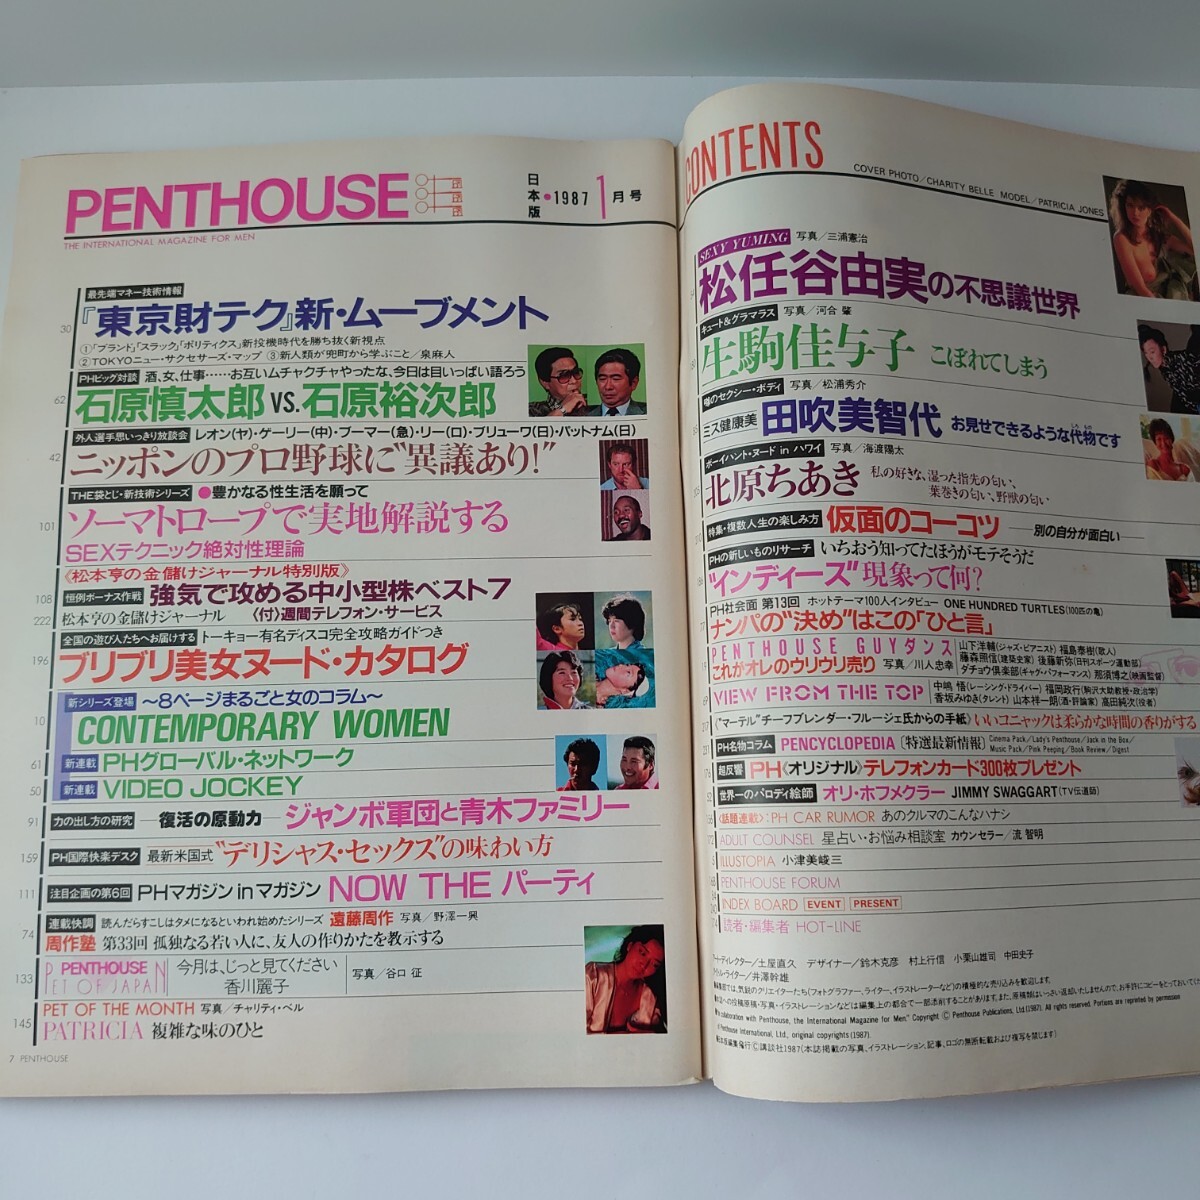 PENTHOUSE
日本版・1987 1月号
THE INTERNATIONAL MAGAZINE FOR MEN
最先端マネー技術情報
30 『東京財テク』新・ムーブメント
①「ブランド」「スラック」「ポリティクス」新投機時代を勝ち抜く新視点
②TOKYOニュー・サクセサーズ・マップ ③新人類が兜町から学ぶこと/泉麻人
PHビッグ対談 酒、女、仕事……お互いムチャクチャやったな、今日は目いっぱい語ろう
62 石原慎太郎 VS. 石原裕次郎
外人選手思いっきり放談会 レオン(ヤ)・ゲーリー(中)・ブーマー(急)・リー(ロ)・ブリューワ(日)・パットナム(日)
42 ニッポンのプロ野球に"異議あり!"
THE袋とじ・新技術シリーズ ●豊かなる性生活を願って
101 ソーマトロープで実地解説する
SEXテクニック絶対性理論
《松本亨の金儲けジャーナル特別版》
108 恒例ボーナス作戦 強気で攻める中小型株ベスト7
222 松本亨の金儲けジャーナル 〈付〉週間テレフォン・サービス
全国の遊び人たちへお届けする トーキョー有名ディスコ完全攻略ガイドつき
196 ブリブリ美女ヌード・カタログ
新シリーズ登場 〜8ページまるごと女のコラム〜
10 CONTEMPORARY WOMEN
61 新連載 PHグローバル・ネットワーク
50 新連載 VIDEO JOCKEY
91 力の出し方の研究 ―復活の原動力― ジャンボ軍団と青木ファミリー
159 PH国際快楽デスク 最新米国式 "デリシャス・セックス"の味わい方
111 注目企画の第6回 PHマガジン in マガジン NOW THE パーティ
連載快調 読んだらすこしはタメになるといわれ始めたシリーズ 遠藤周作 写真/野澤一興
74 周作塾 第33回 孤独なる若い人に、友人の作りかたを教示する
133 PENTHOUSE PET OF JAPAN 今月は、じっと見てください 香川麗子 写真/谷口 征
PET OF THE MONTH 写真/チャリティ・ベル
145 PATRICIA 複雑な味のひと
7 PENTHOUSE
CONTENTS
COVER PHOTO/CHARITY BELLE MODEL/PATRICIA JONES
SEXY YUMING 写真/三浦憲治
松任谷由実の不思議世界
キュート&グラマラス 写真/河合 肇
生駒佳与子 こぼれてしまう
噂のセクシー・ボディ 写真/松浦秀介
ミス健康美 田吹美智代 お見せできるような代物です
ボーイハント・ヌード in ハワイ 写真/海渡陽太
北原ちあき 私の好きな、湿った指先の匂い、
葉巻きの匂い、野獣の匂い
特集・複数人生の楽しみ方 仮面のコーコツ ―別の自分が面白い―
PHの新しいものリサーチ いちおう知ってたほうがモテそうだ
"インディーズ"現象って何?
PH社会面 第13回 ホットテーマ100人インタビュー ONE HUNDRED TURTLES(100匹の亀)
ナンパの"決め"はこの「ひと言」
PENTHOUSE GUYダンス
これがオレのウリウリ売り 写真/川人忠幸
山下洋輔(ジャズ・ピアニスト) 福島泰樹(歌人)
藤森照信(建築史家) 後藤新弥(日刊スポーツ運動部)
ダチョウ倶楽部(ギャグ・パフォーマンス) 那須博之(映画監督)
VIEW FROM THE TOP 中嶋 悟(レーシング・ドライバー) 福岡政行(駒沢大助教授・政治学)
香坂みゆき(タレント) 山本祥一朗(酒・評論家) 高田純次(役者)
《"マーテル"チーフブレンダー・フルージェ氏からの手紙》 いいコニャックは柔らかな時間の香りがする
PH名物コラム PENCYCLOPEDIA [特選最新情報] Cinema Pack/Lady's Penthouse/Jack in the Box/
Music Pack/Pink Peeping/Book Review/Digest
超反響 PH《オリジナル》テレフォンカード300枚プレゼント
世界一のパロディ絵師 オリ・ホフメクラー JIMMY SWAGGART(TV伝道師)
〈話題連載〉:PH CAR RUMOR あのクルマのこんなハナシ
ADULT COUNSEL 星占い・お悩み相談室 カウンセラー/流 智明
ILLUSTOPIA 小津美峻三
PENTHOUSE FORUM
INDEX BOARD EVENT PRESENT
読者・編集者 HOT-LINE
ディレクター/土屋直久 デザイナー/鈴木克彦 村上行信 小栗山雄司 中田史子
ライター/井澤幹雄